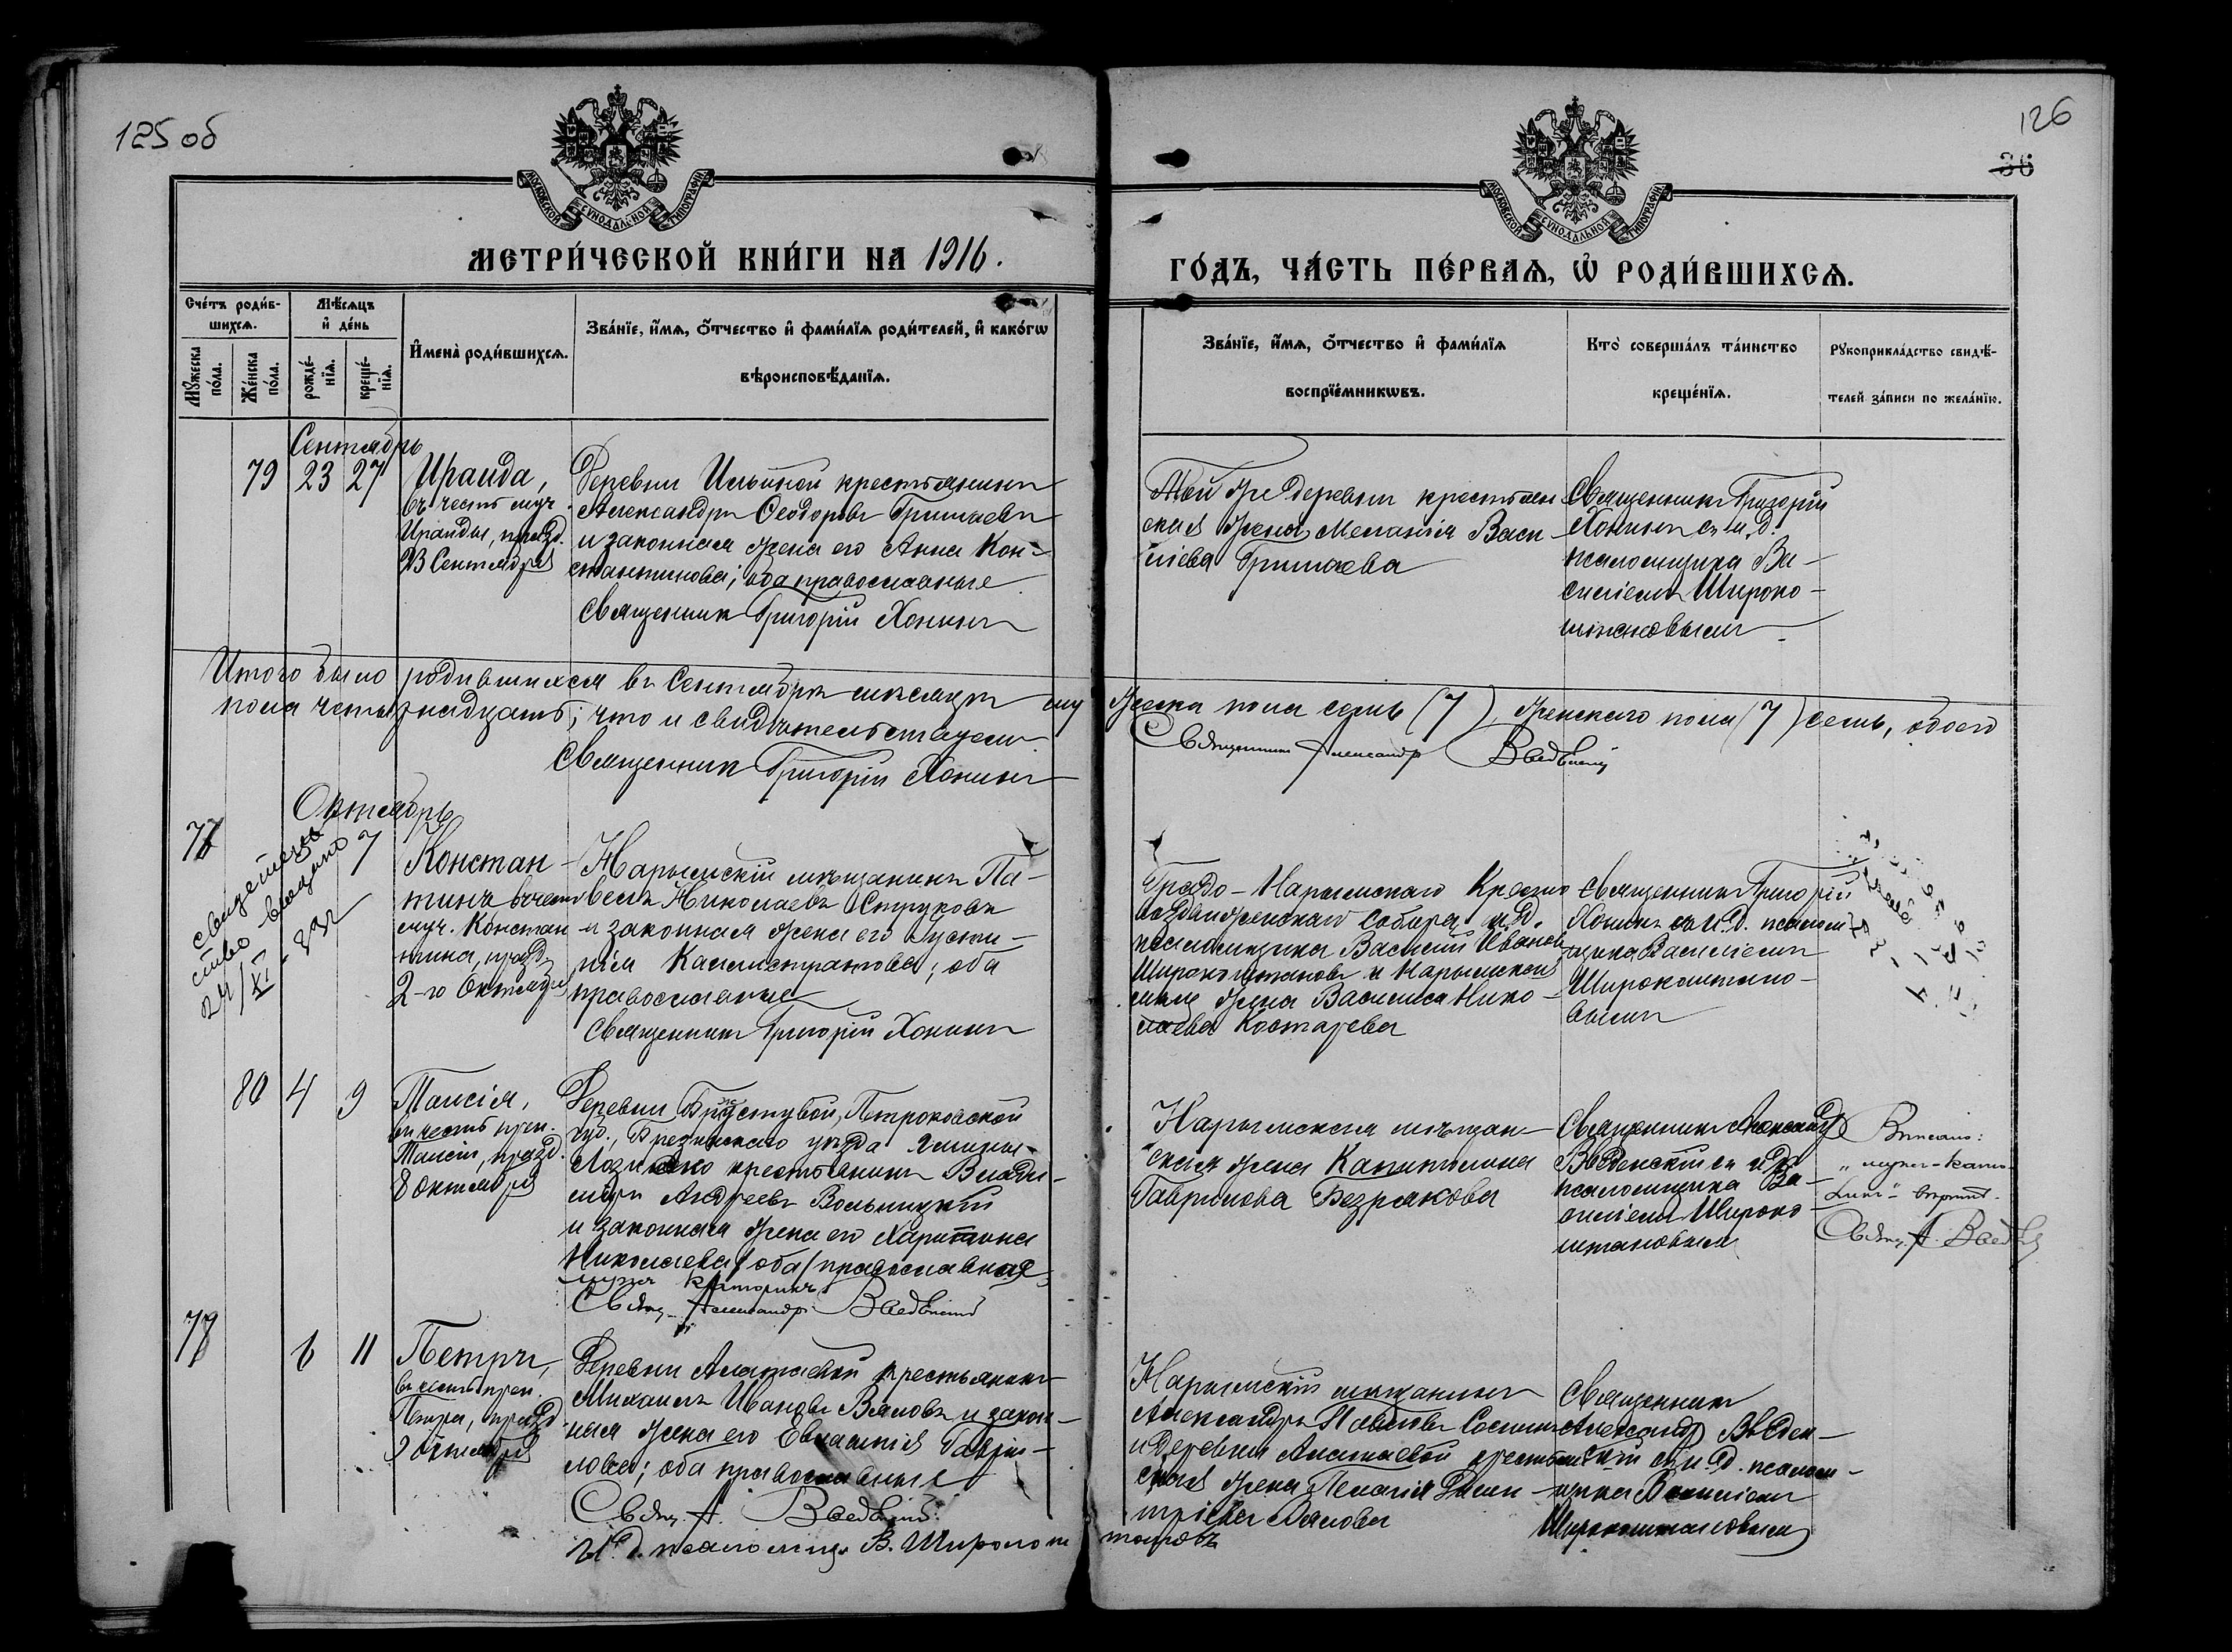 125 об
126
36
МОСКОВСКОЙ СѴНОДАЛЬНОЙ ТИПОГРАФІИ
МОСКОВСКОЙ СѴНОДАЛЬНОЙ ТИПОГРАФІИ
МЕТРИ́ЧЕСКОЙ КНИ́ГИ НА 1916.
ГО́ДЪ, ЧА́СТЬ ПЕ́РВАѦ, Ѽ РОДИ́ВШИХСѦ.
Сче́тъ роди́в-
шихсѧ.
Мѣ́сѧцъ
и҆ де́нь
Мꙋ́жеска по́ла.
Же́нска по́ла.
рожде́-
нїѧ.
креще́-
нїѧ.
И҆мена̀ роди́вшихсѧ.
Зва́нїе, и҆́мѧ, ѻ҆́тчество и҆ фами́лїѧ роди́телей, и҆ како́гѡ
вѣроисповѣ́данїѧ.
Зва́нїе, и҆́мѧ, ѻ҆́тчество и҆ фами́лїѧ
воспрїе́мникѡвъ.
Кто̀ соверша́лъ та́инство
креще́нїѧ.
Рꙋкоприкла́дство свидѣ́-
телей за́писи по жела́нїю.
Сентябрь
79 23 27
Ираида,
въ честь муч.
Ираиды, празд.
23 Сентября
Деревни Ильиной крестьянинъ
Александръ Ѳеодоровъ Гришаевъ
и законная жена его Анна Кон-
стантинова; оба православные
Священникъ Григорій Хонинъ
Той же деревни крестьян
ская жена Меланія Васи
лiева Гришаева
Священникъ Григорій
Хонинъ съ и. д.
псаломщика Ва-
силіемъ Широко-
Итого было родившихся въ Сентябрѣ мѣсяцѣ му
жеска пола семь (7), женскаго пола (7) семь, обоего
пола четырнадцать; что и свидѣтельствуемъ
Священникъ Григорій Хонинъ
Священникъ Александръ Введенскій
Октябрь
77
7
свидетель
ство выдано
24/XI
Констан-
тинъ въ честь
муч. Констан
тина, празд.
2-го Октября
Нарымскій мѣщанинъ Па-
велъ Николаевъ Струковъ
и законная жена его Усти-
нія Каллистратова; оба
православные
Священникъ Григорій Хонинъ
Градо-Нарымскаго Кресто
воздвиженскаго собора и. д.
псаломщика Василій Ивановъ
Широкоштановъ и Нарымскаго
жена Василиса Нико-
лаева Костарева
Священникъ Григорій
Хонинъ съ и. д. псалом
щика Василіемъ
Широкоштано-
вымъ
80 4 9
Таисія,
въ честь преп.
Таисіи, празд.
8 Октября
Деревни Петроковской
губ., Брезинскаго уѣзда гмины
крестьянинъ Влади-
міръ Андреевъ Вольницкій
и законная жена его Харитина
Николаева /оба/ православная
мужъ католикъ
Свящ. Александръ Введенскій
Нарымская мѣщан-
ская жена Капитолина
Гаврилова Безрякова
Священникъ Александръ
Введенскій съ и. д.
псаломщика Ва-
силіемъ Широко
штановымъ
Вписано:
„мужъ-като-
ликъ" вѣрно.
Свящ. А. Введенскій
78
6 11
Петръ,
въ честь преп.
Петра, празд.
9 Октября
Деревни Алатаевой крестьянинъ
Михаилъ Ивановъ Вяловъ и закон-
ная жена его Евлампія Гаври-
лова; оба православные
Свящ. А. Введенскій
Нарымскій мѣщанинъ
Александръ Павловъ
и деревни Алатаевой крестьян
ская жена Пелагія Дими-
тріева Вялова
Священникъ
Александръ Введен-
скій съ и. д. псалом-
щика Василіемъ
Широкоштановымъ
И. д. псаломщ. В. Широкош
тановъ